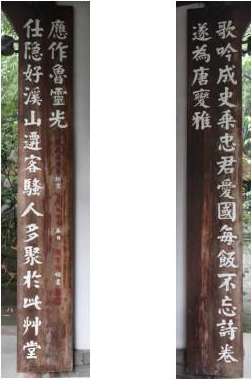 歌吟成史乘忠君愛國每飯不忘詩卷
遂為唐變雅
仕隐好溪山遷客騷人多聚於此艸堂
應作魯靈光